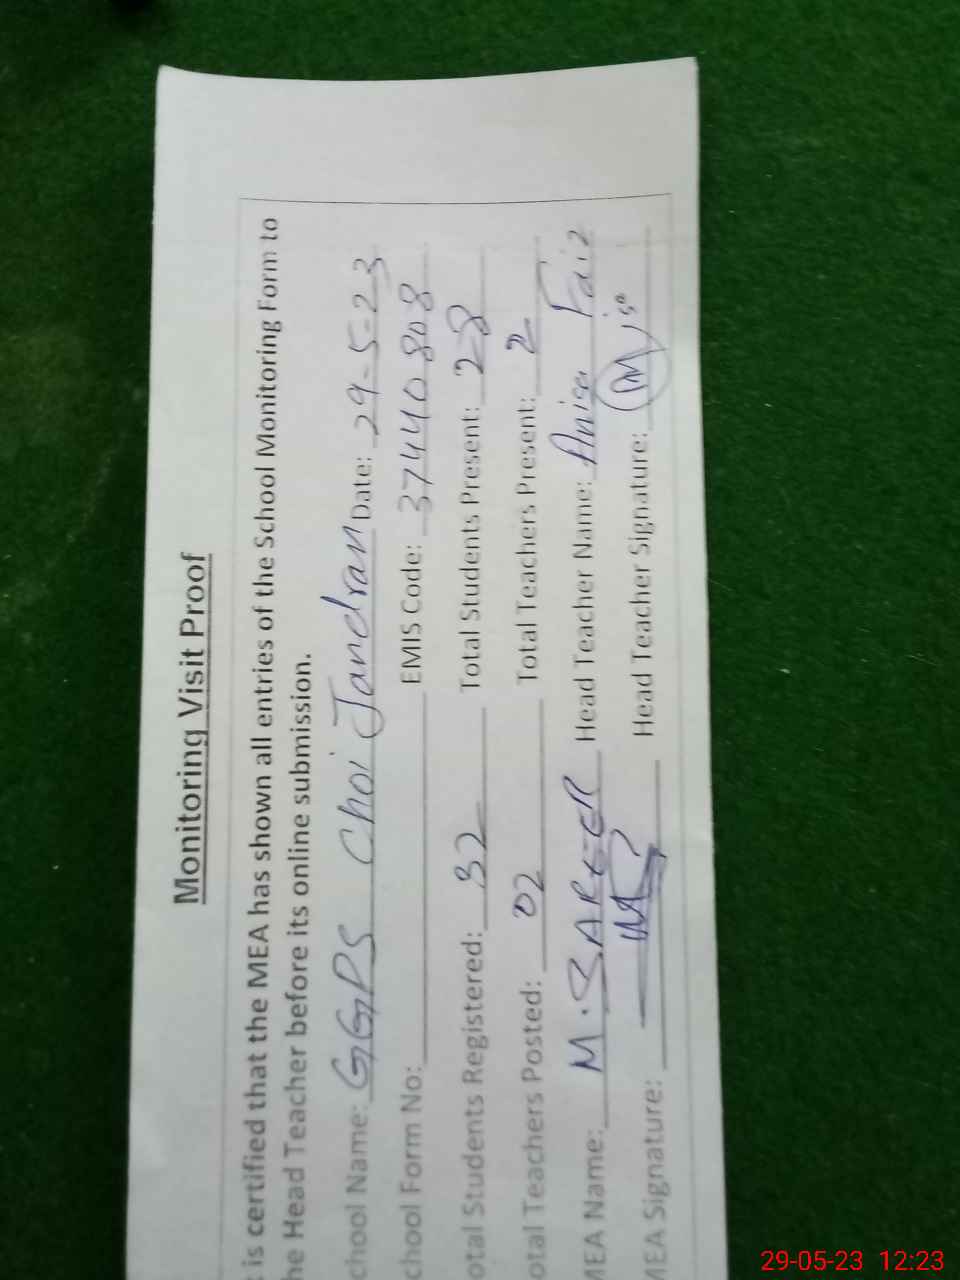 Monitoring Visit Proof
t is certified that the MEA has shown all entries of the School Monitoring Form to
he Head Teacher before its online submission.
chool Name: GGPS Choi Jandran Date: 29-5-23
chool Form No: EMIS Code: 37440808
otal Students Registered: 32 Total Students Present: 28
otal Teachers Posted: 02 Total Teachers Present: 2
MEA Name: M. SAREER Head Teacher Name: Anisa Faiz
MEA Signature: Head Teacher Signature:
29-05-23 12:23